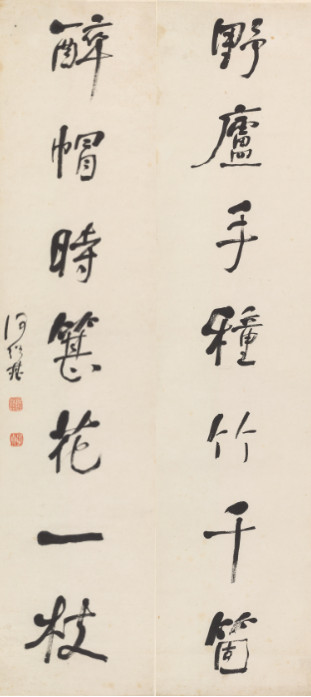 野廬手種竹千箇
醉帽時簪花一枝
何紹基